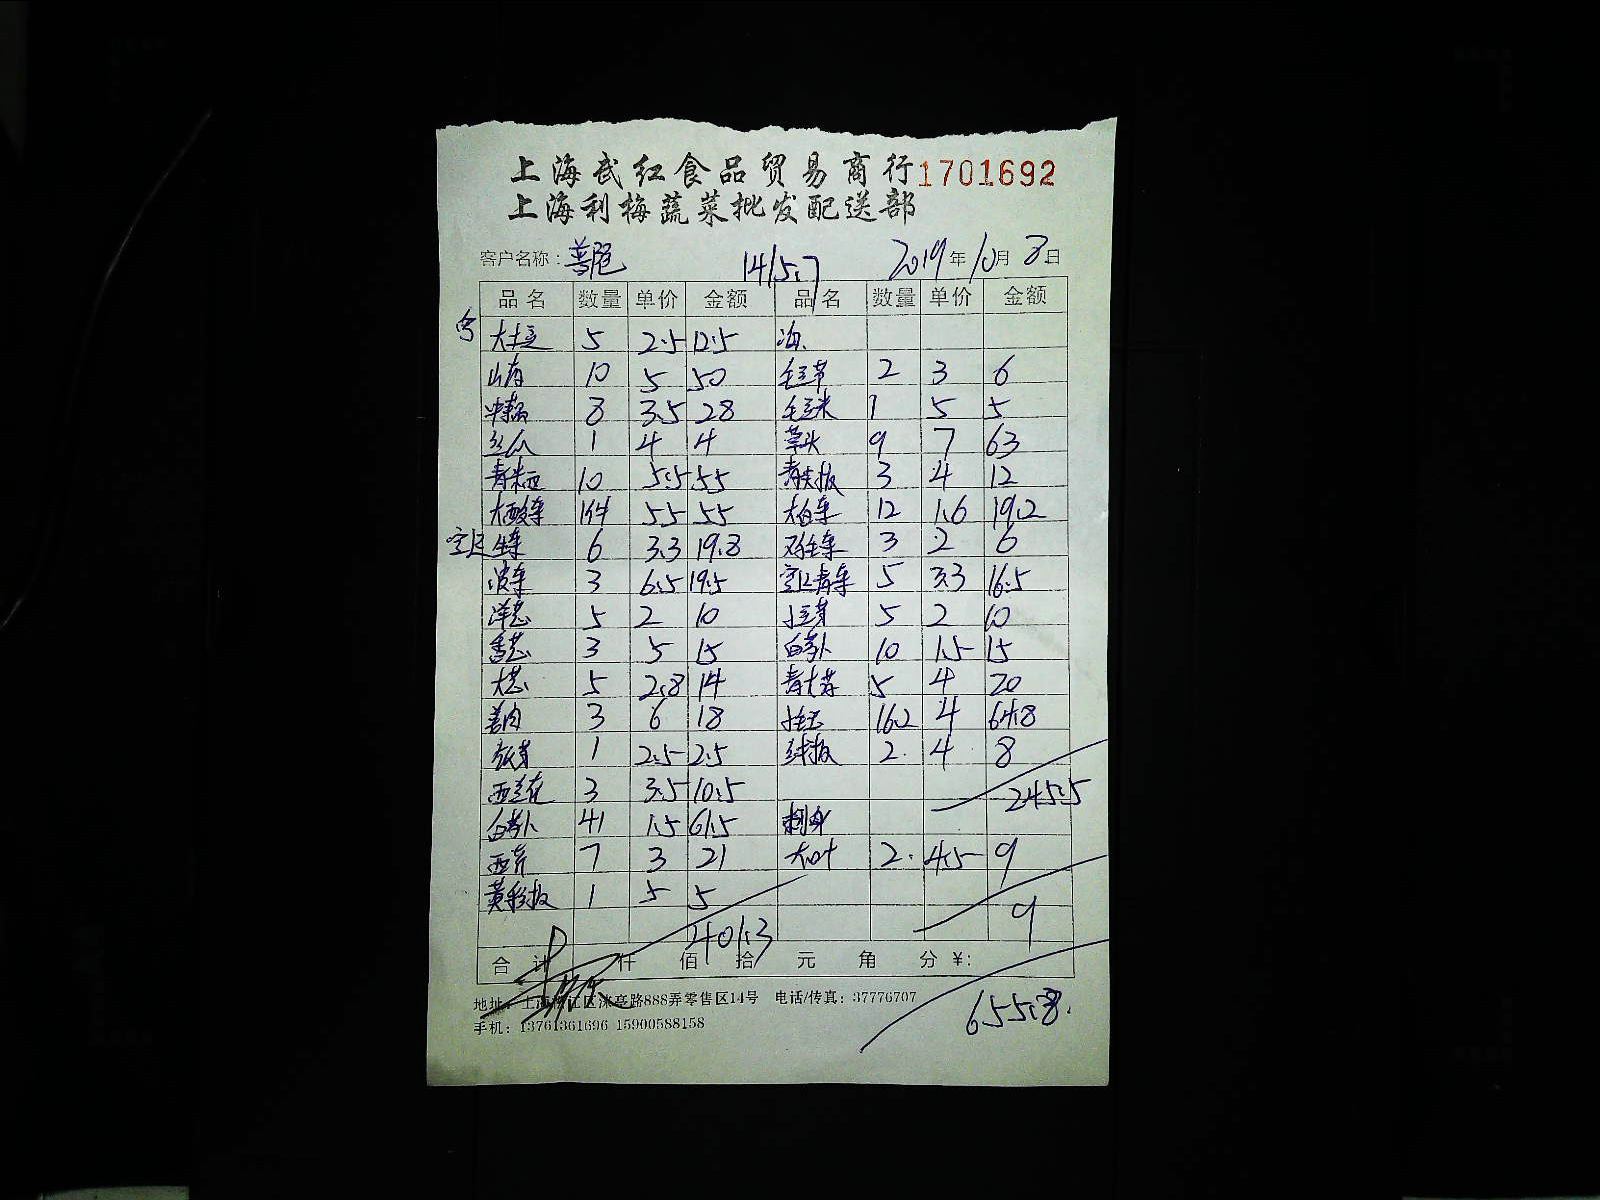 上海武红食品贸易商行 1701692
上海利梅蔬菜批发配送部
客户名称: 1415.7 2019年10月8日
品名 数量 单价 金额 品名 数量 单价 金额
大土豆 5 2.5 12.5 海
10 5 50 毛豆节 2 3 6
8 3.5 28 毛豆米 1 5 5
丝瓜 1 4 4 草头 9 7 63
10 5.5 55 3 4 12
大酸菜 5.5 55 大白菜 12 1.6 19.2
生菜 6 3.3 19.8 3 2 6
波菜 3 6.5 19.5 5 3.3 16.5
洋葱 5 2 10 5 2 10
香葱 3 5 15 白萝卜 10 1.5 15
大葱 5 2.8 14 5 4 20
3 6 18 16.2 4 64.8
1 2.5 2.5 2 4 8
西兰花 3 3.5 10.5 245.5
白萝卜 41 1.5 61.5 刺身
西芹 7 3 21 大叶 2 4.5 9
黄彩椒 1 5 5
401.3 9
合计 仟 佰 拾 元 角 分 ¥:
地址: 上海松江区涞亭路888弄零售区14号 电话/传真: 37776707
手机: 13761361696 15900588158
655.8